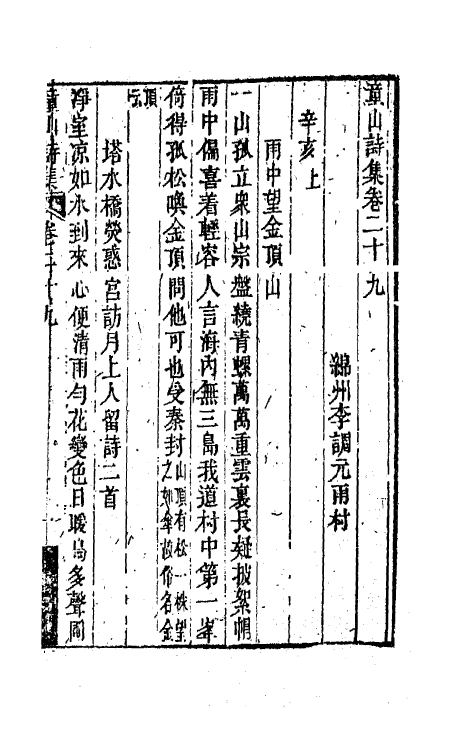 童山詩集卷二十九
綿州李調元雨村
辛亥上
雨中望金頂山
一山孤立衆山宗盤繞青螺萬萬重雲裏長疑披絮帽
雨中偏喜着輕容人言海內無三島我道村中第一峯
倚得孤松喚金頂問他可也受秦封山頂有松一株望之如傘故俗名金
頂云
塔水橋熒惑宮訪月上人留詩二首
淨室凉如水到來心便清雨勻花變色日暖鳥多聲閣
童山詩集 卷二十九